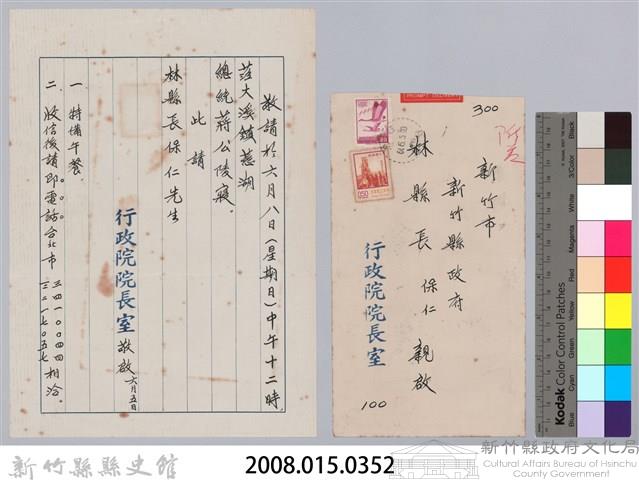 敬請於六月八日(星期日)中午十二時
蒞大溪鎮慈湖
總統蔣公陵寢。
此請
林縣長保仁先生
行政院院長室 敬啟 六月五日
一 特備午餐。
二、收信後請即電話台北市 三四一〇〇四四 三二一七〇五七 相洽。
300
新竹市
新竹縣政府
林縣長 保仁 親啟
行政院院長室
100
64.6.5
050
Kodak Color Control Patches
Blue
Cyan
Green
Yellow
Red
Magenta
White
3/Color
Black
新竹縣縣史館
2008.015.0352
新竹縣政府文化局
Cultural Affairs Bureau of Hsinchu
County Government